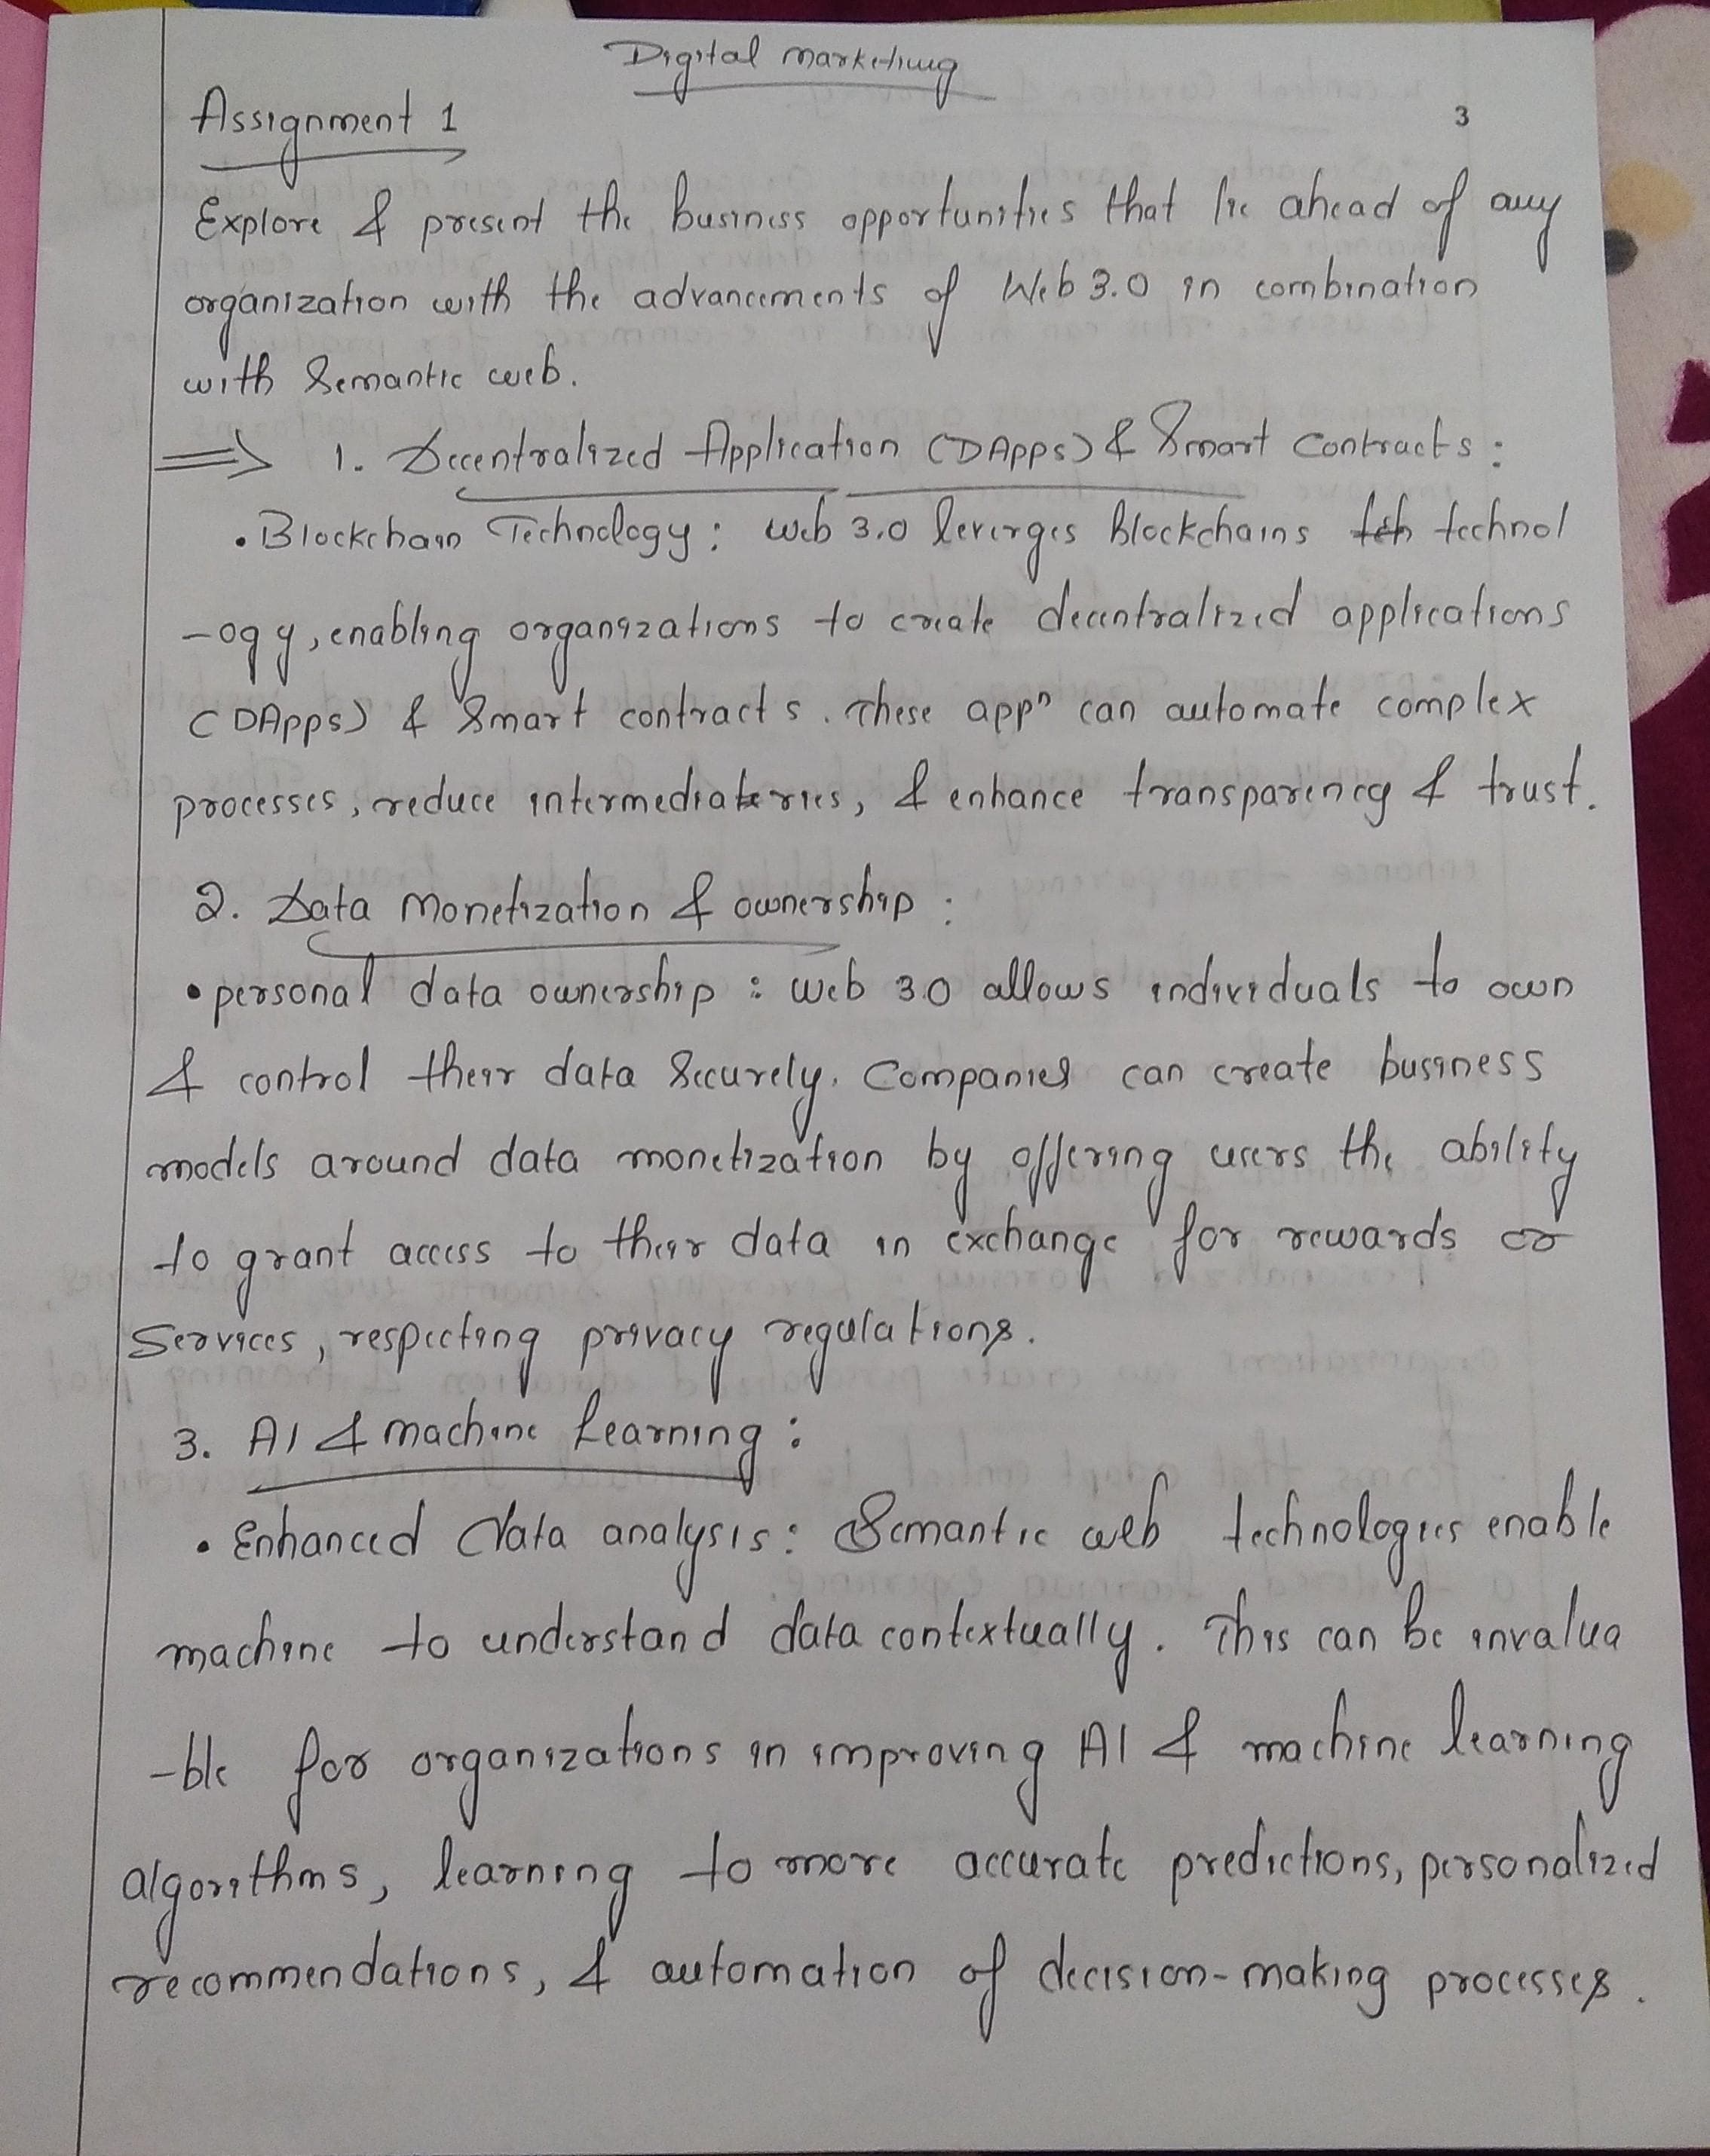 Digital marketing
Assignment 1
3
Explore & present the business opportunities that lie ahead of any
organization with the advancements of Web 3.0 in combination
with Semantic web.
⇒ 1. Decentralized Application (DApps) & Smart Contracts :
• Blockchain Technology : web 3.0 leverges blockchains technol
-ogy, enabling organizations to create decentralized applications
(DApps) & Smart contracts. These appⁿ can automate complex
processes, reduce intermediateries, & enhance transparency & trust.
2. Data Monetization & ownership :
• personal data ownership : web 3.0 allows individuals to own
& control their data securely. Companies can create business
models around data monetization by offering users the ability
to grant access to their data in exchange for rewards or
Services, respecting privacy regulations.
3. AI & machine Learning :
• Enhanced data analysis : Semantic web technologies enable
machine to understand data contextually. This can be invalua
-ble for organizations in improving AI & machine learning
algorithms, learning to more accurate predictions, personalized
recommendations, & automation of decision-making processes.